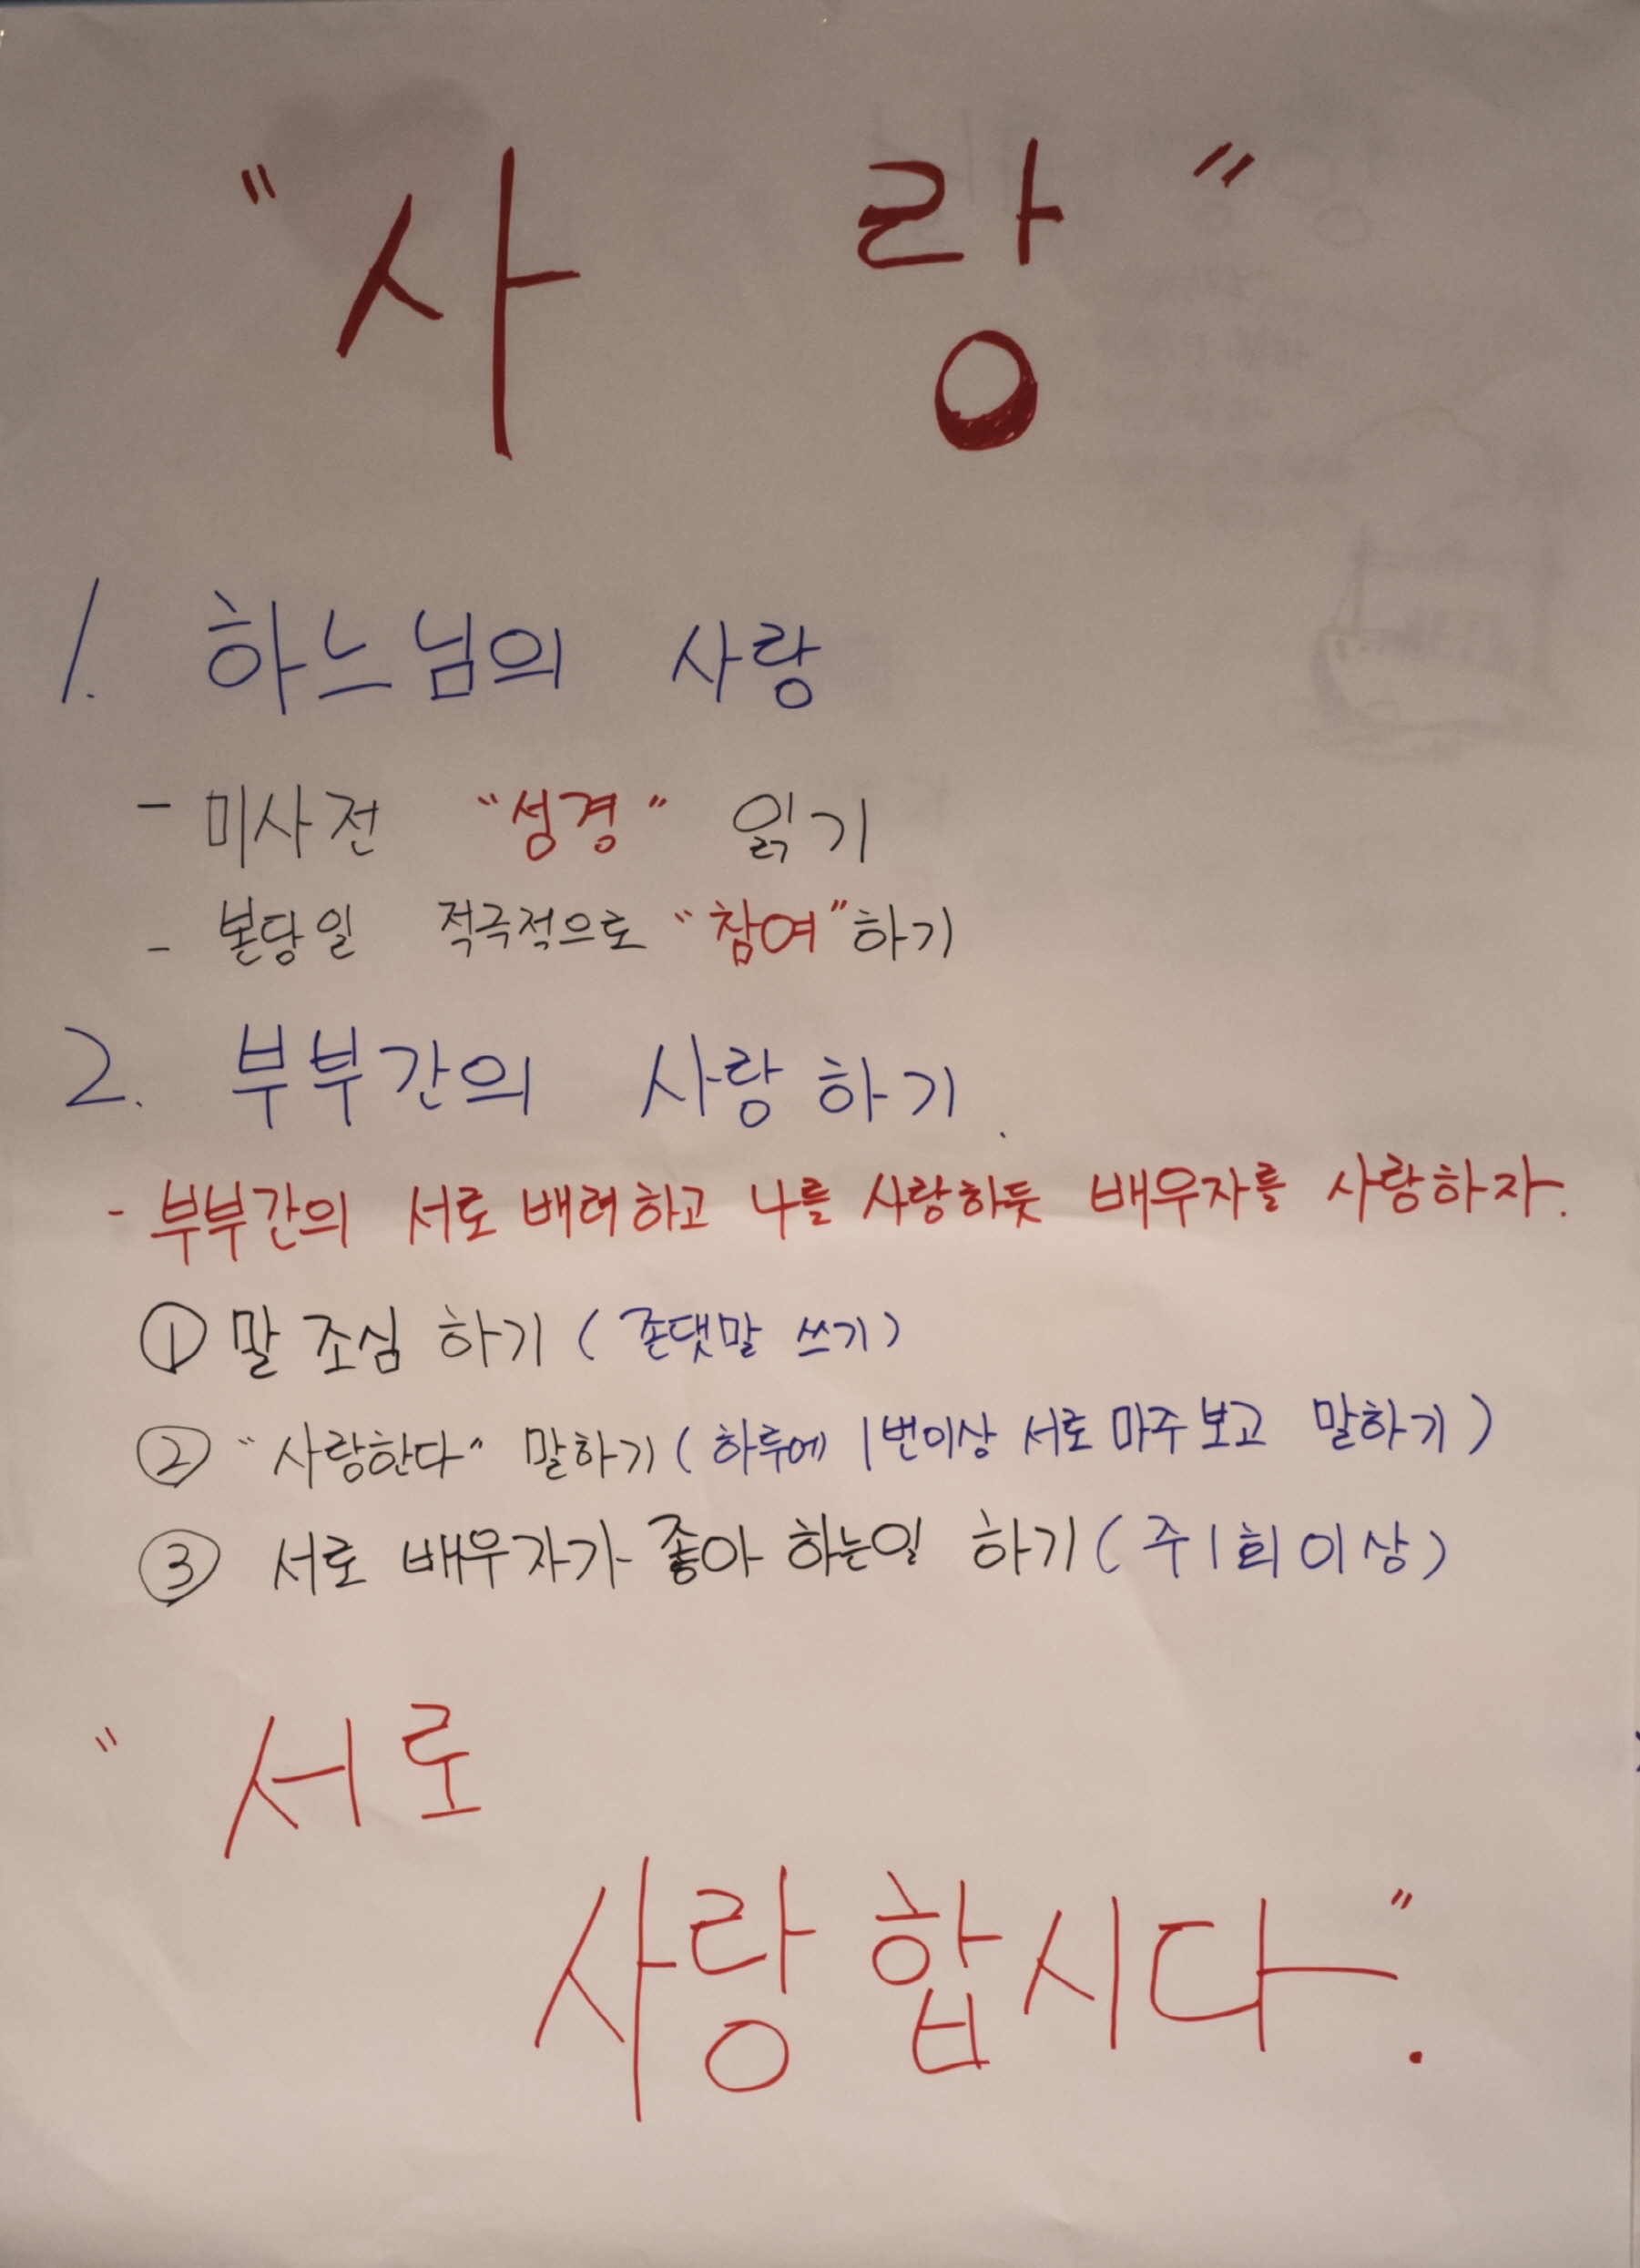 "사 랑"
1. 하느님의 사랑
- 미사전 "성경" 읽기
- 본당일 적극적으로 "참여"하기
2. 부부간의 사랑하기.
- 부부간의 서로 배려하고 나를 사랑하듯 배우자를 사랑하자.
① 말 조심 하기 (존댓말 쓰기)
② "사랑한다" 말하기 (하루에 1번이상 서로 마주보고 말하기)
③ 서로 배우자가 좋아 하는일 하기 (주 1회 이상)
"서로
사랑합시다".